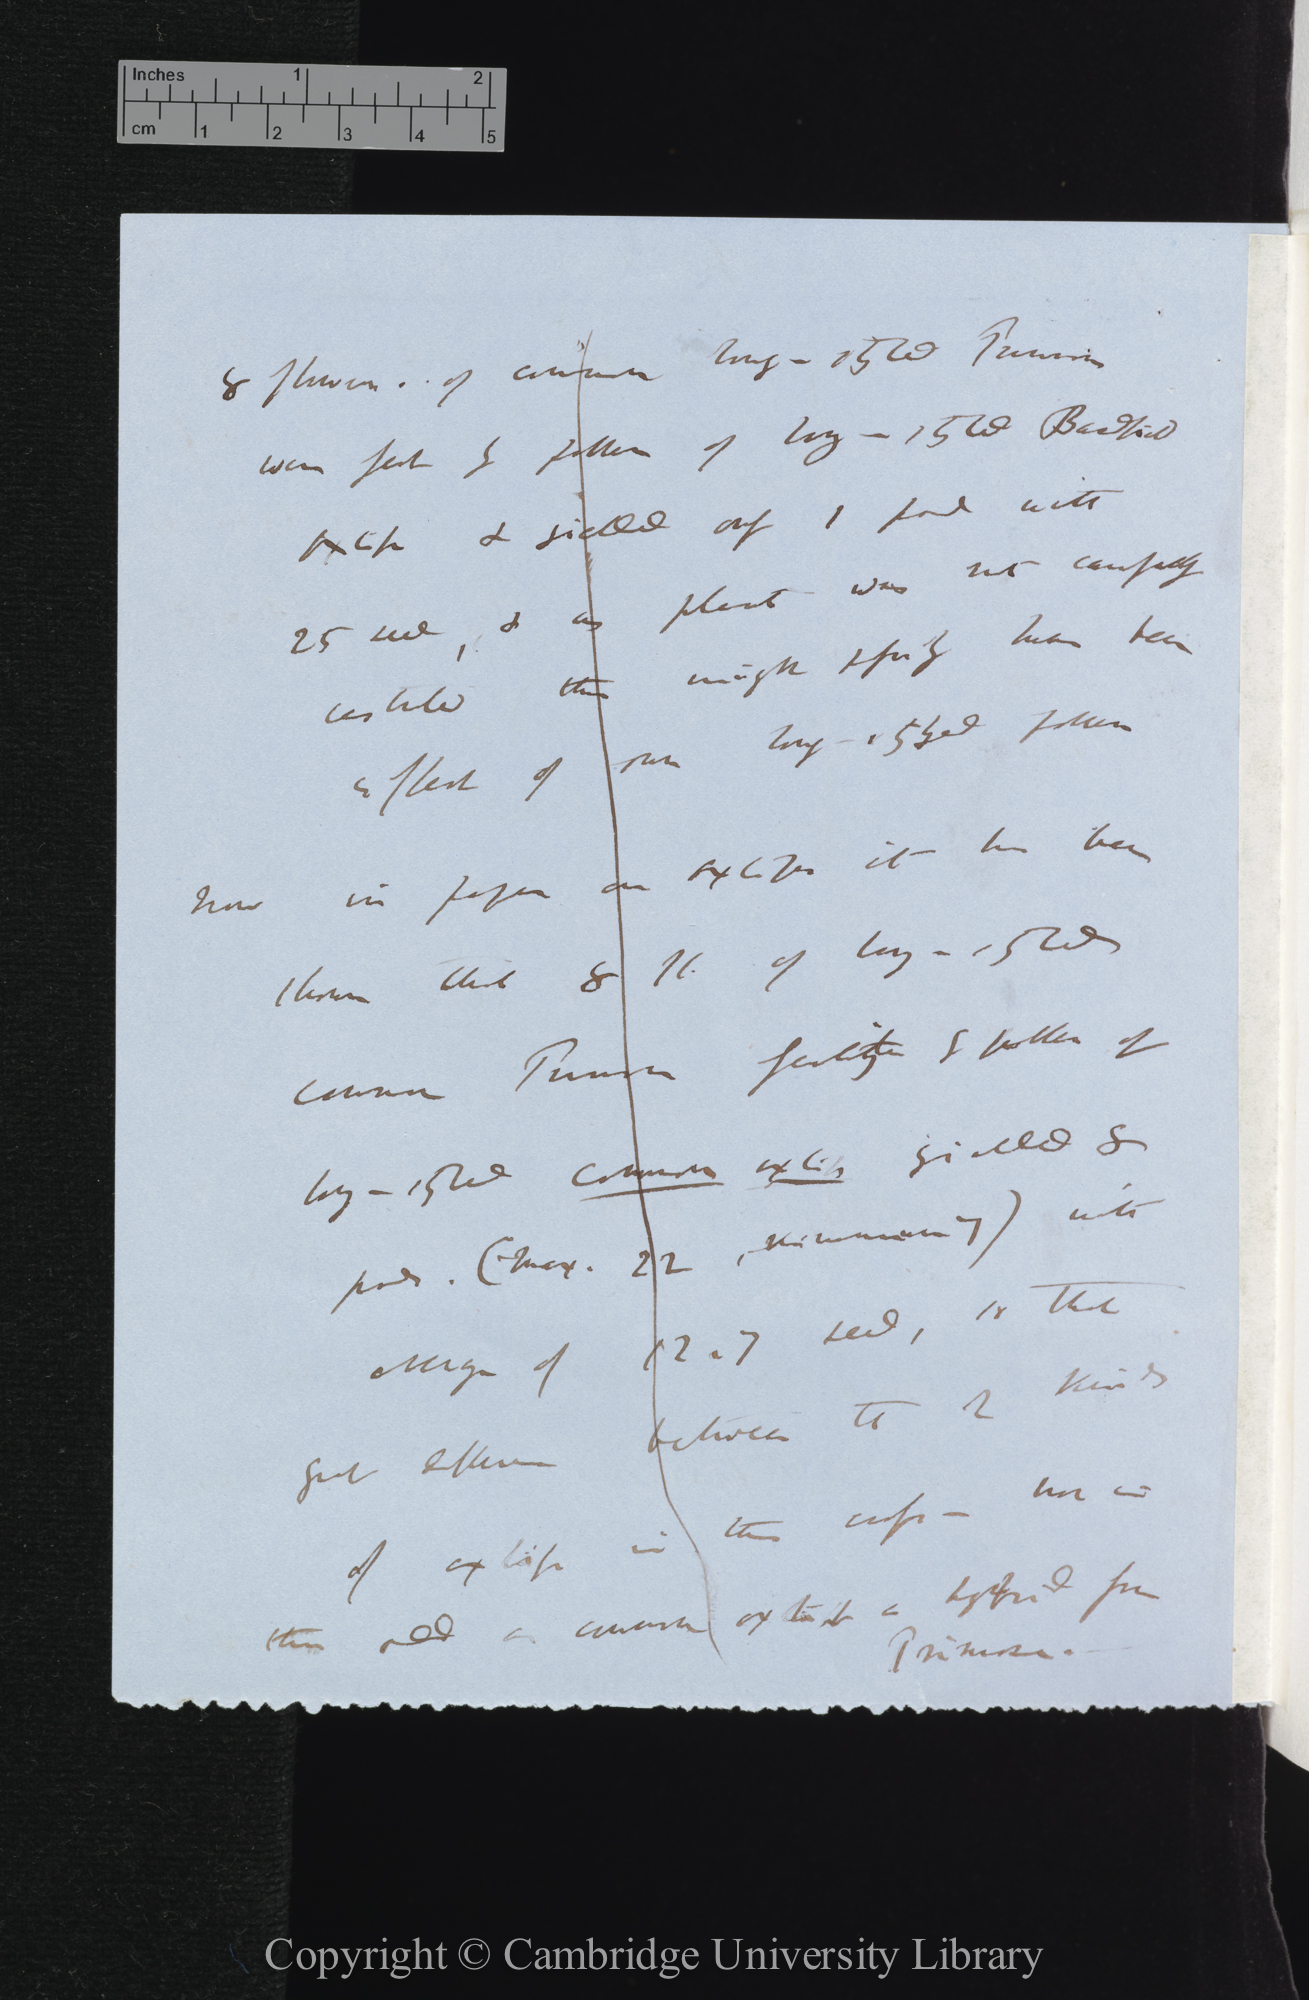 Inches 1 2
cm 1 2 3 4 5
8 flowers . of common long-styled Primrose
were fert by pollen of long-styled Bardfield
oxlip & yielded only 1 pod with
25 seed, & as plant was not carefully
castrated this might have been
effect of own long-styled pollen
Now in paper on oxlips it has been
shown that 8 fl. of long-styled
common Primrose fertilized by pollen of
long-styled common oxlip yielded 8
pods . (max. 22, minimum 7) with
average of 12.7 seed, so that
great difference between the 2 kinds
of oxlip in this respect — nor is
this odd as common oxlip is a hybrid from
Primrose. —
Copyright © Cambridge University Library